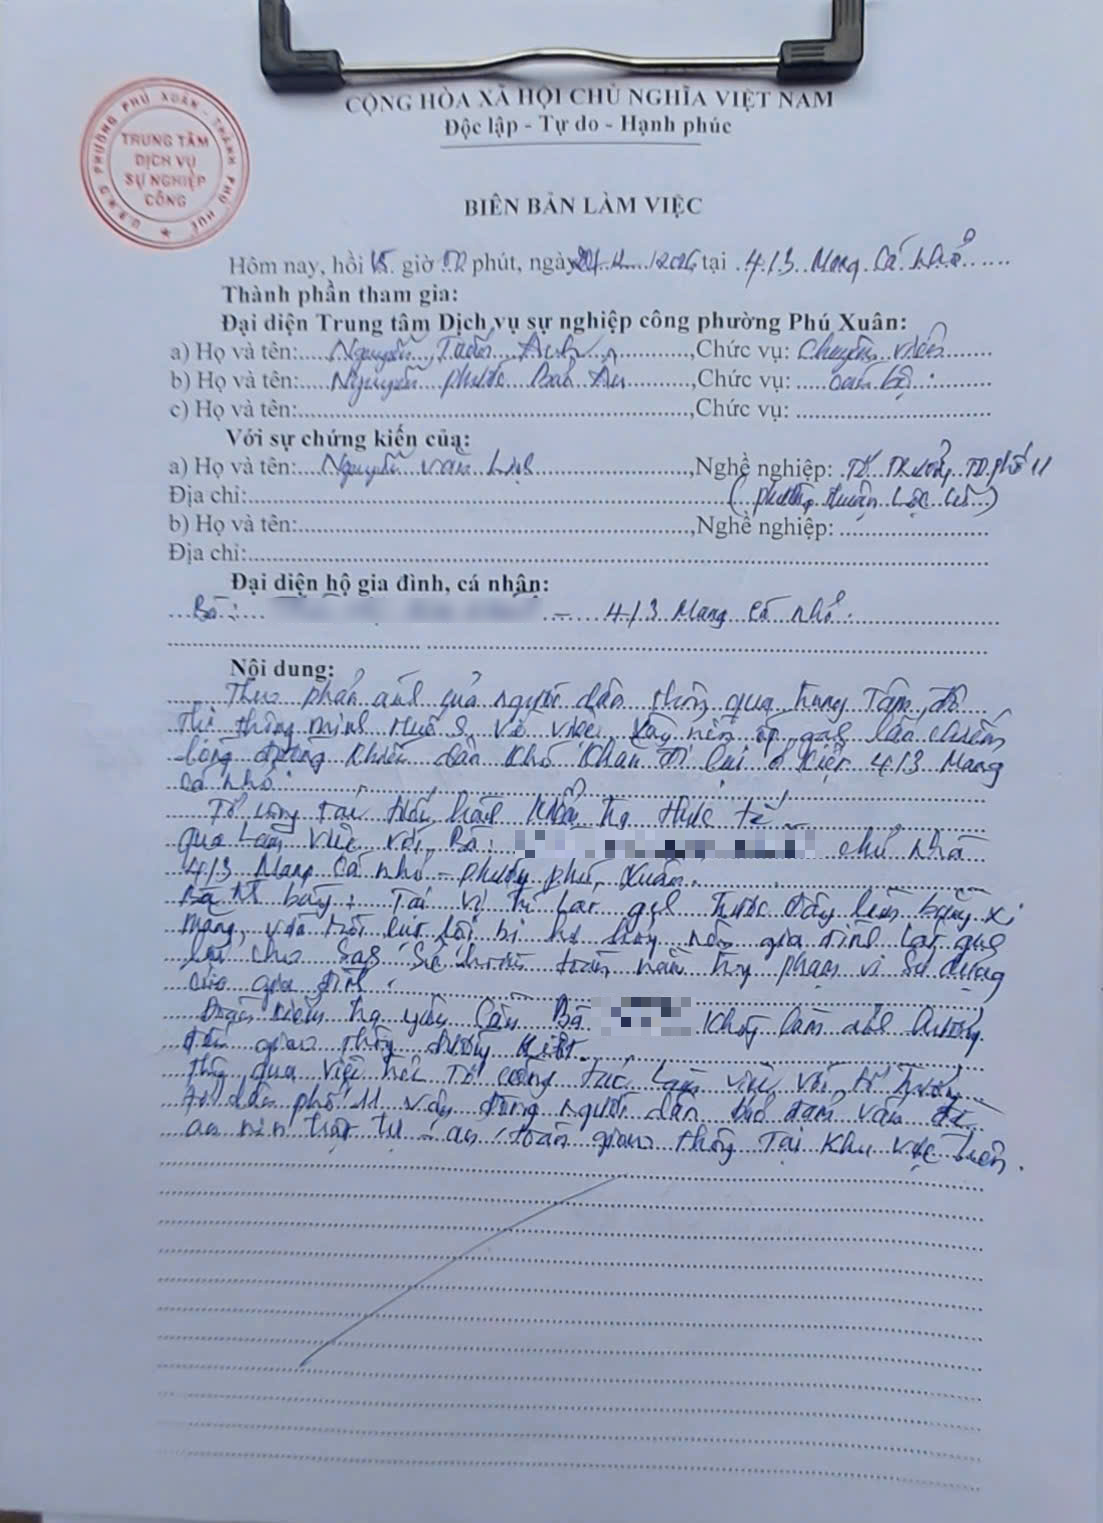 CỘNG HÒA XÃ HỘI CHỦ NGHĨA VIỆT NAM
Độc lập - Tự do - Hạnh phúc
U.B.N.D PHƯỜNG PHÚ XUÂN - THÀNH PHỐ HUẾ
TRUNG TÂM
DỊCH VỤ
SỰ NGHIỆP
CÔNG
BIÊN BẢN LÀM VIỆC
Hôm nay, hồi 15 giờ phút, ngày /2026 tại 4/3 Mang Cá nhỏ
Thành phần tham gia:
Đại diện Trung tâm Dịch vụ sự nghiệp công phường Phú Xuân:
a) Họ và tên: Nguyễn Tuấn Anh, Chức vụ: Chuyên viên
b) Họ và tên: Nguyễn Phước Bảo Ân, Chức vụ: cán bộ
c) Họ và tên:, Chức vụ:
Với sự chứng kiến của:
a) Họ và tên: Nguyễn Văn, Nghề nghiệp: Tổ Trưởng TD phố 11
Địa chỉ: (phường Thuận Lộc cũ)
b) Họ và tên:, Nghề nghiệp:
Địa chỉ:
Đại diện hộ gia đình, cá nhân:
Bà: - 4/3 Mang Cá nhỏ.
Nội dung:
Theo phản ánh của người dân thông qua Trung Tâm đô
thị thông minh Huế S, về việc xây nền ốp gạch lấn chiếm
lòng đường khiến dân khó khăn đi lại ở kiệt 4/3 Mang
cá nhỏ.
Tổ công tác tiến hành kiểm tra thực tế
qua làm việc với Bà: chủ nhà
4/3 Mang Cá nhỏ - phường Phú Xuân.
Bà trình bày: Tại vị trí lát gạch trước đây làm bằng xi
măng, vừa rồi lụt lội bị hư hỏng nên gia đình lát gạch
lại cho sạch sẽ hoàn toàn nằm trong phạm vi sử dụng
của gia đình.
Đoàn kiểm tra yêu cầu Bà không làm ảnh hưởng
đến giao thông đường kiệt.
Thông qua việc trên Tổ công tác làm việc với tổ trưởng
tổ dân phố 11 vận động người dân bảo đảm vấn đề
an ninh trật tự - an toàn giao thông tại khu vực trên.